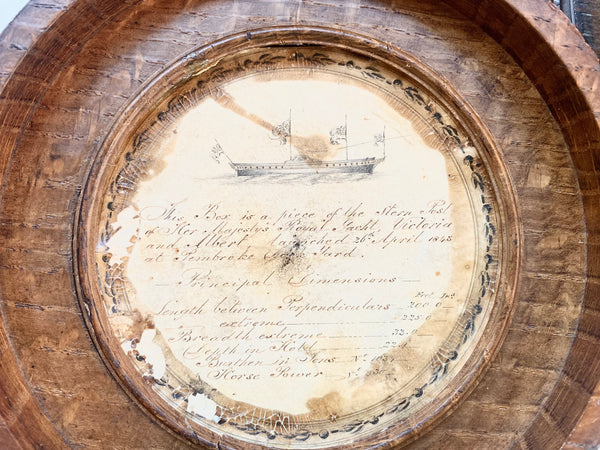 This Box is a piece of the Stern Post
of Her Majesty's Royal Yacht, Victoria
and Albert launched 26th April 1843
at Pembroke Yard.
Principal Dimensions
Feet Ins
Length between Perpendiculars 200.0
extreme 225.0
Breadth extreme 33.0
Depth in Hold 22
Burthen in Tons No
Horse Power No